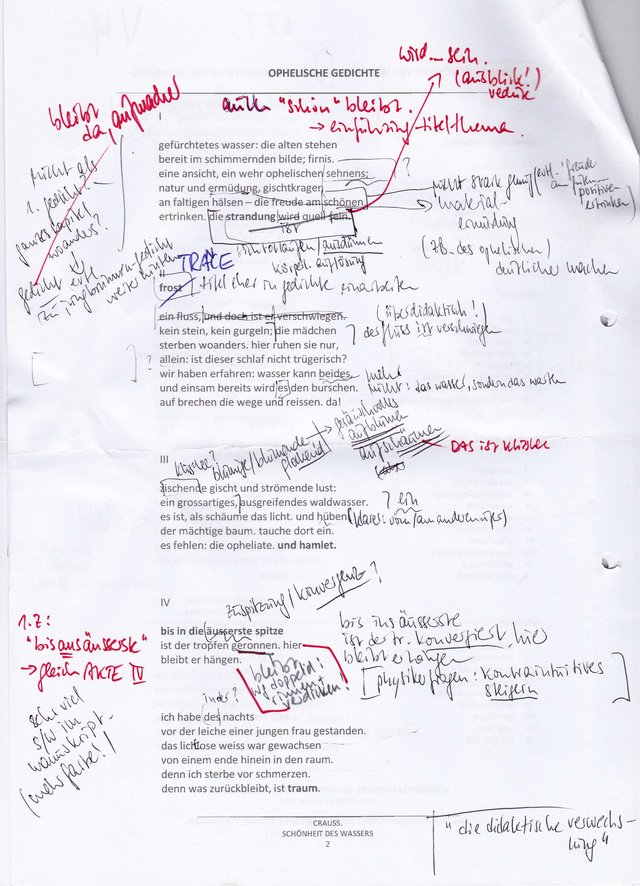 OPHELISCHE GEDICHTE
wird – sein.
(ausblick!)
bleibt
da, aufmacher
auch "schön" bleibt.
→ einführung titelthema.
I
gefürchtetes wasser: die alten stehen
bereit im schimmernden bilde; firnis.
eine ansicht, ein wehr ophelischen sehnens;
natur und ermüdung, gischtkragen
an faltigen hälsen – die freude am schönen
ertrinken. die strandung wird quell sein.
ist
nicht als
1. gedicht!
woanders?
gedicht erst
nicht stark genug
material
ermüdung
(z.b. des ophelischen)
deutlicher machen
positiven
ertrinken)
körperl. auflösung
TRACE
II
frost
titel eher in gedichte einarbeiten
ein fluss, und doch ist er verschwiegen.
kein stein, kein gurgeln; die mädchen
sterben woanders. hier ruhen sie nur,
allein: ist dieser schlaf nicht trügerisch?
wir haben erfahren: wasser kann beides.
und einsam bereits wird es den burschen.
auf brechen die wege und reissen. da!
(überdidaktisch!)
? der fluss ist verschwiegen
nicht: das wasser, sondern das warten
geräuschvolles
aufblühen
aufschäumen
DAS ist klischee
III
blumige/blühende
zischende gischt und strömende lust:
ein grossartiges, ausgreifendes waldwasser.
es ist, als schäume das licht. und hüben
der mächtige baum. tauche dort ein.
es fehlen: die opheliate. und hamlet.
? ein
(klarer: vom/am anderen ufer)
zuspitzung/konvergenz?
IV
bis in die äusserste spitze
ist der tropfen geronnen. hier
bleibt er hängen.
1. Z:
"bis ans äusserste"
→ gleich AKTE IV
sehr viel
s/w im
manuskript
(mehr farbe!)
bis ins äusserste
ist der tr. konvergiert, hier
bleibt er hängen
[physik fragen: kontraintuitives
steigern]
bleibt
wg doppeld.
rinnen +
verdicken!
in der?
ich habe des nachts
vor der leiche einer jungen frau gestanden.
das lichtlose weiss war gewachsen
von einem ende hinein in den raum.
denn ich sterbe vor schmerzen.
denn was zurückbleibt, ist traum.
CRAUSS.
SCHÖNHEIT DES WASSERS
2
"die didaktische verwechs-
lung"